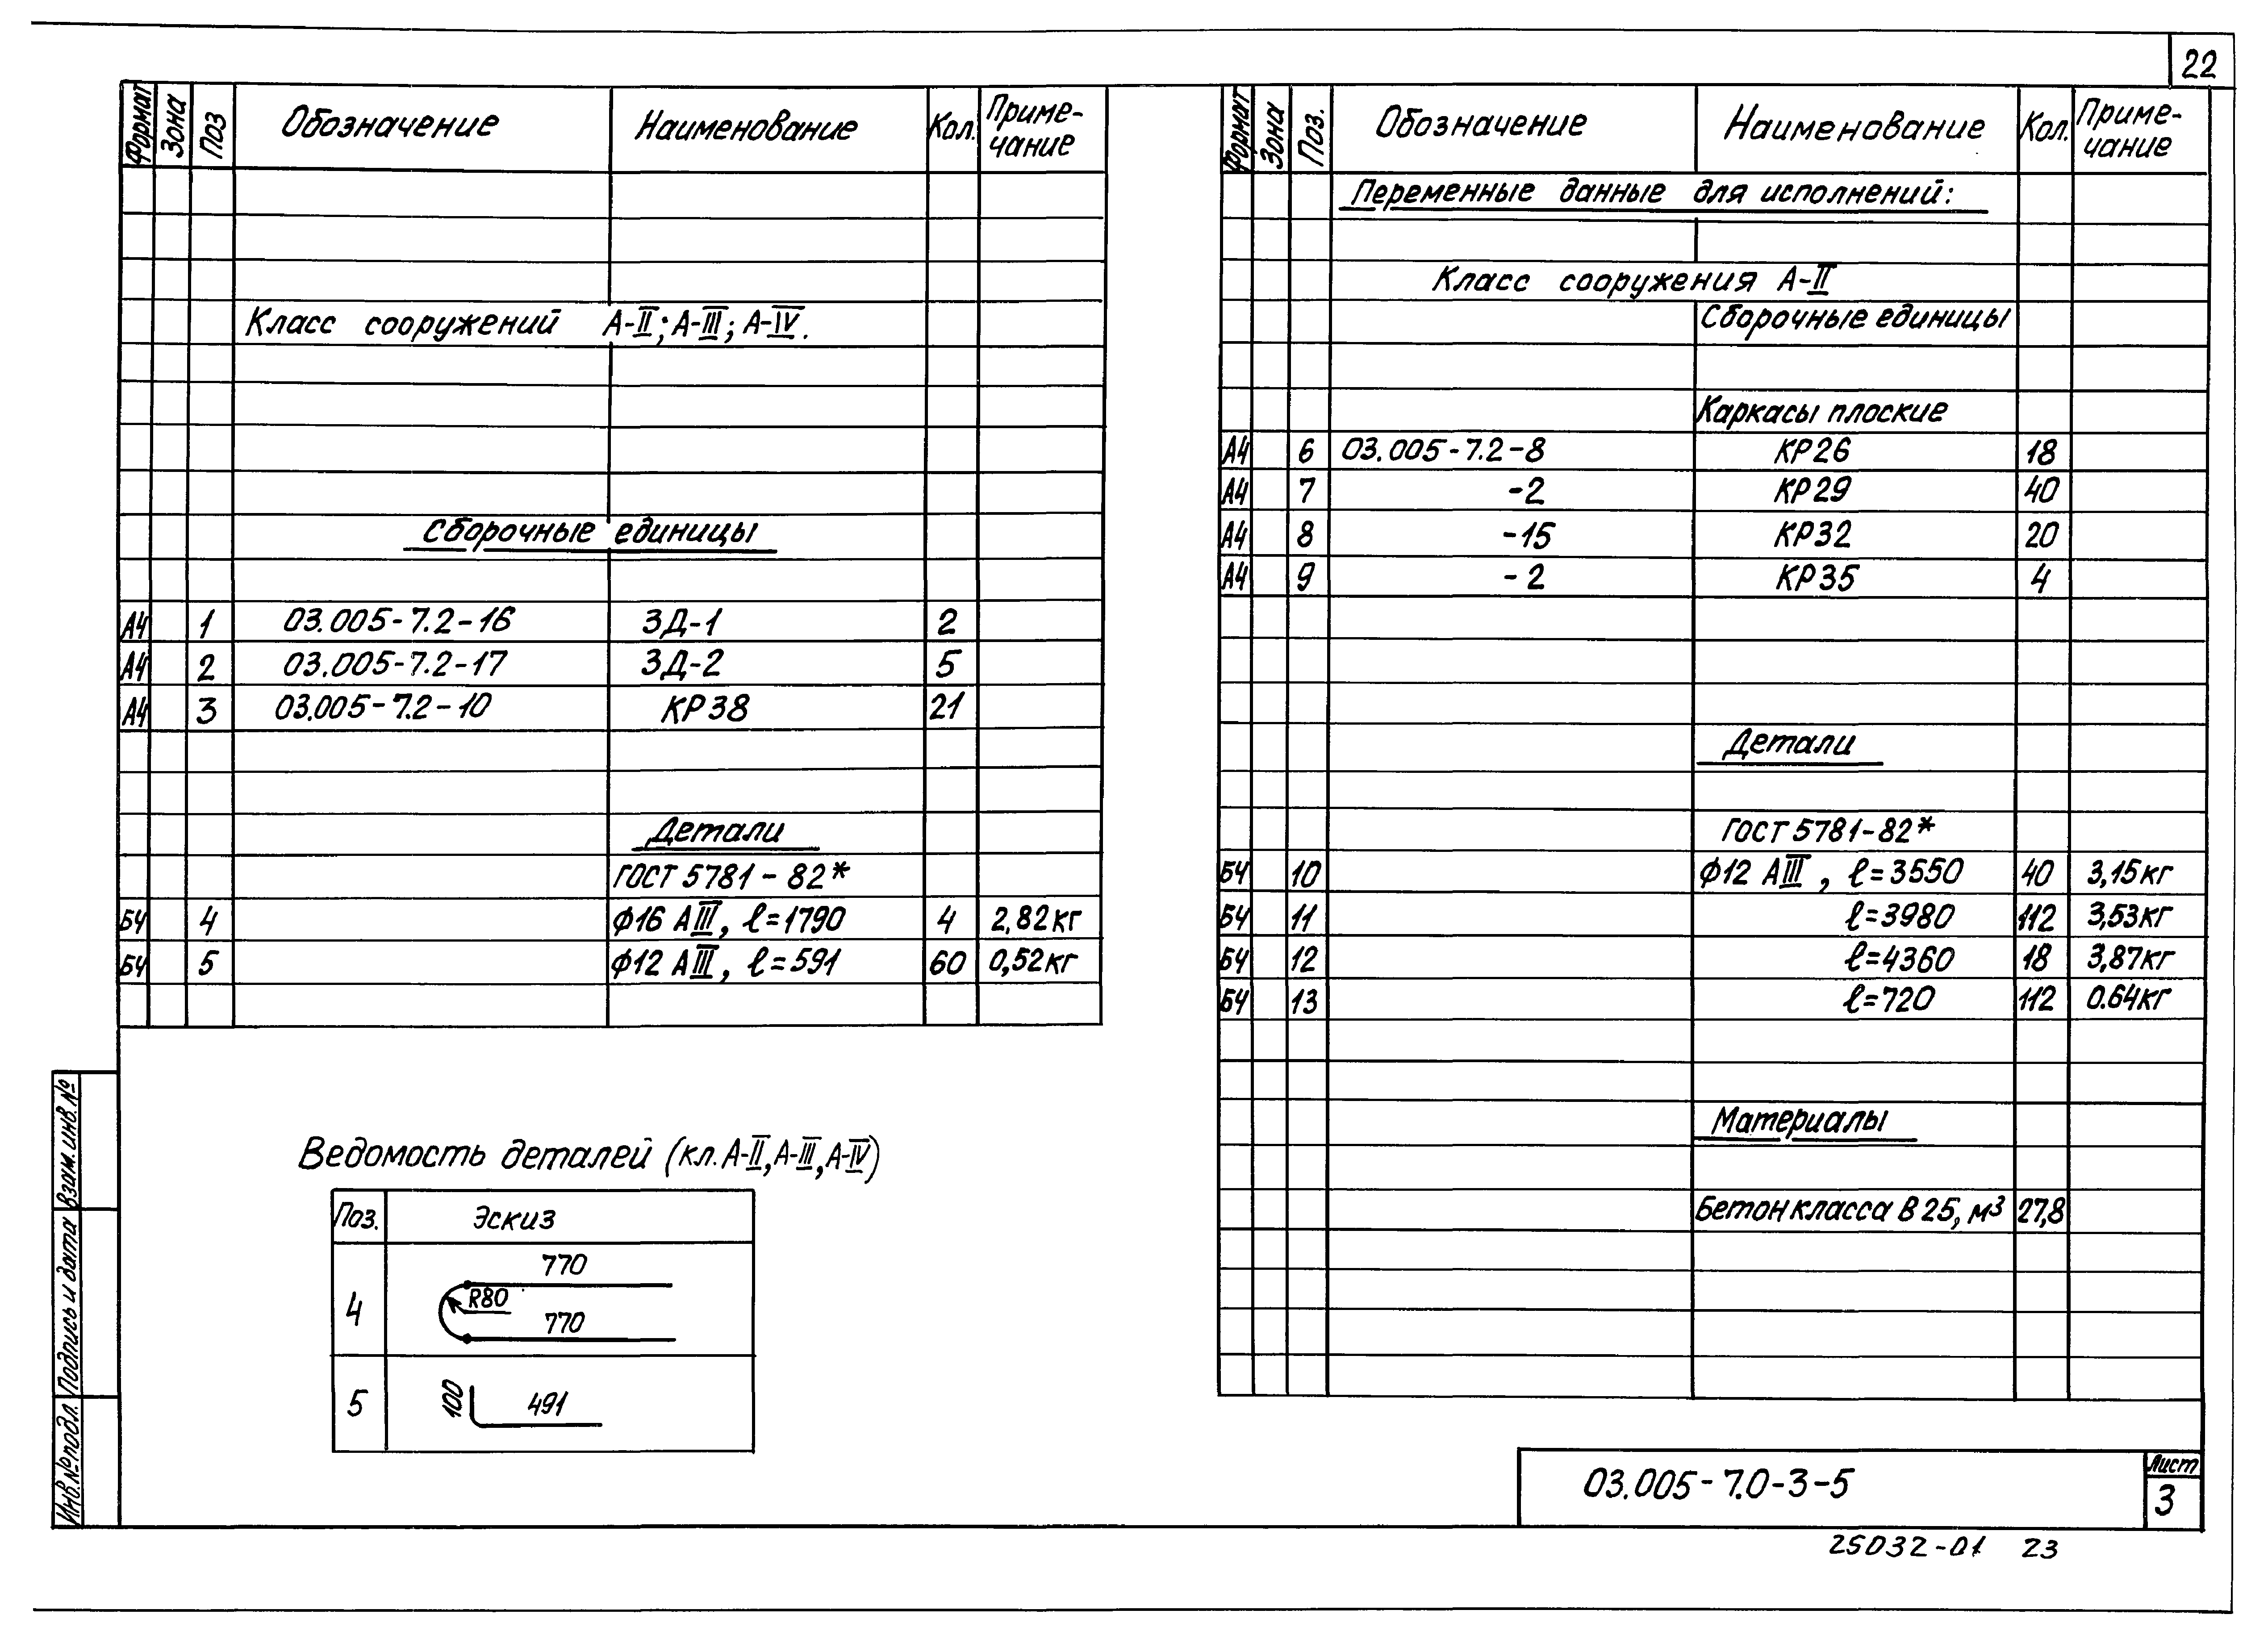 22
Формат Зона Поз Обозначение Наименование Кол. Приме-
чание
Класс сооружений А-II; А-III; А-IV.
Сборочные единицы
А4 1 03.005-7.2-16 ЗД-1 2
А4 2 03.005-7.2-17 ЗД-2 5
А4 3 03.005-7.2-10 КР38 21
Детали
ГОСТ 5781-82*
БЧ 4 Ф16 АIII, ℓ=1790 4 2,82кг
БЧ 5 Ф12 АIII, ℓ=591 60 0,52кг
Ведомость деталей (кл. А-II, А-III, А-IV)
Поз. Эскиз
4 770
R80
770
5 100 491
Формат Зона Поз. Обозначение Наименование Кол. Приме-
чание
Переменные данные для исполнений:
Класс сооружения А-II
Сборочные единицы
Каркасы плоские
А4 6 03.005-7.2-8 КР26 18
А4 7 -2 КР29 40
А4 8 -15 КР32 20
А4 9 -2 КР35 4
Детали
ГОСТ 5781-82*
БЧ 10 Ф12 АIII, ℓ=3550 40 3,15кг
БЧ 11 ℓ=3980 112 3,53кг
БЧ 12 ℓ=4360 18 3,87кг
БЧ 13 ℓ=720 112 0.64кг
Материалы
Бетон класса В25, м³ 27,8
Взам. инв. №
Подпись и дата
Инв. № подл.
03.005-7.0-3-5
Лист
3
25032-01 23